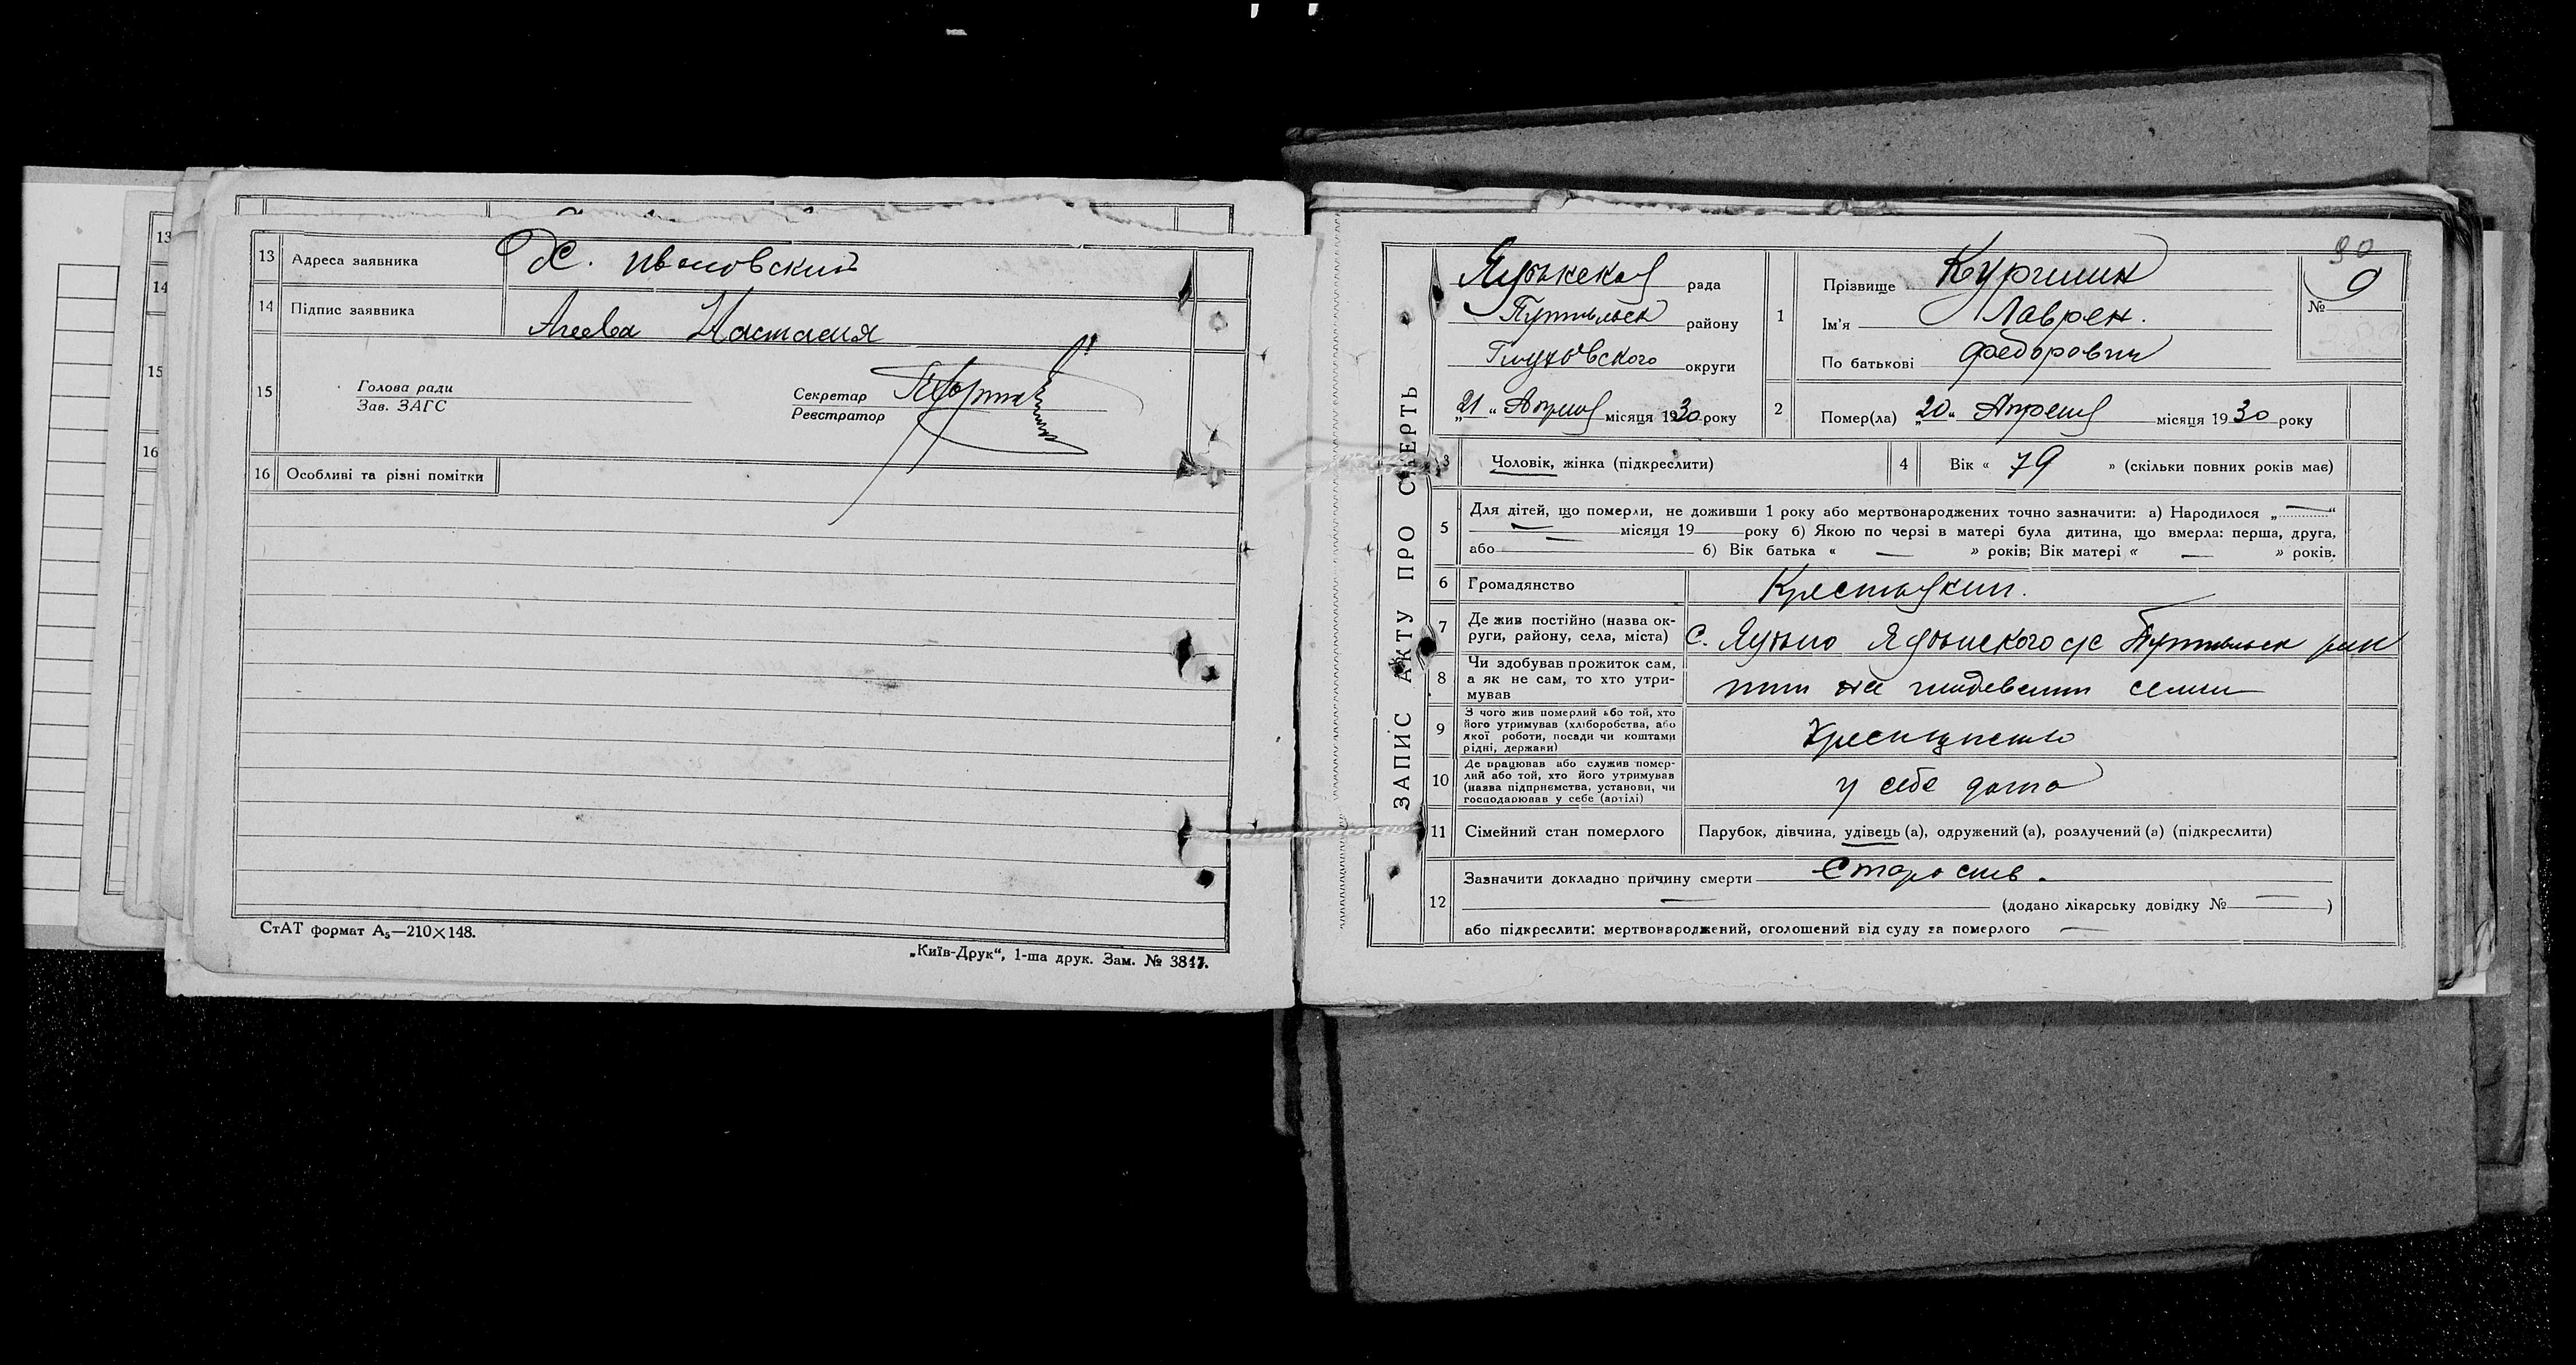 13
14
15
16
13 Адреса заявника Х. Ивановский
14 Підпис заявника Агеева Настасия
15 Голова ради
Зав. ЗАГС
Секретар
Реєстратор
16 Особливі та різні помітки
СтАТ формат А₅—210×148.
„Київ-Друк“, 1-ша друк. Зам. № 3847.
90
ЗАПИС АКТУ ПРО СМЕРТЬ
рада
Путивльск району
Глуховского округи
„21“ Апреля місяця 1930 року
1 Прізвище Куршин
Ім'я Лаврен.
По батькові Федорович
№ 9
2 Помер(ла) „20“ Апреля місяця 1930 року
3 Чоловік, жінка (підкреслити)
4 Вік « 79 » (скільки повних років має)
5 Для дітей, що померли, не доживши 1 року або мертвонароджених точно зазначити: а) Народилося „—“
— місяця 19 року б) Якою по черзі в матері була дитина, що вмерла: перша, друга,
або — б) Вік батька « — » років; Вік матері « — » років.
6 Громадянство
7 Де жив постійно (назва ок-
руги, району, села, міста) с. Яцыно с/с Путивльск
8 Чи здобував прожиток сам,
а як не сам, то хто утри-
мував
9 З чого жив померлий або той, хто
його утримував (хліборобства, або
якої роботи, посади чи коштами
рідні, держави)
10 Де працював або служив помер-
лий або той, хто його утримував
(назва підприємства, установи, чи
господарював у себе (артілі) у себе дома
11 Сімейний стан померлого Парубок, дівчина, удівець (а), одружений (а), розлучений (а) (підкреслити)
12 Зазначити докладно причину смерти
— (додано лікарську довідку № — )
або підкреслити: мертвонароджений, оголошений від суду за померлого —